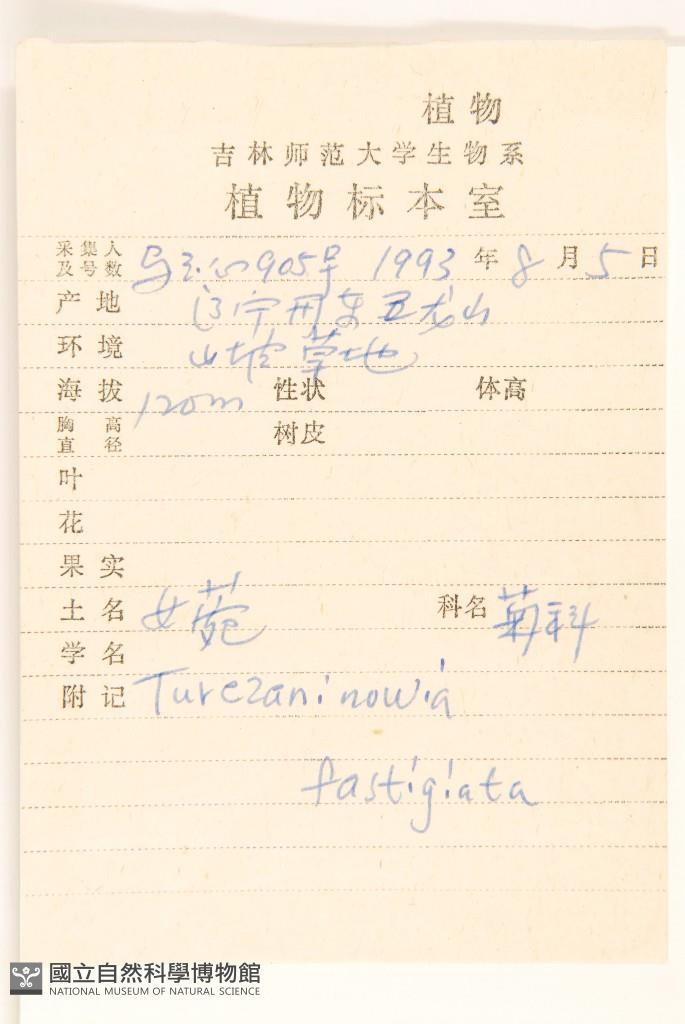 植物
吉林师范大学生物系
植物标本室
采集人及号数 905号 1993年8月5日
产地 辽宁丹东五龙山
环境 山坡草地
海拔 120m 性状 体高
胸高直径 树皮
叶
花
果实
土名 女菀 科名 菊科
学名
附记 Turczaninowia
fastigiata
國立自然科學博物館
NATIONAL MUSEUM OF NATURAL SCIENCE